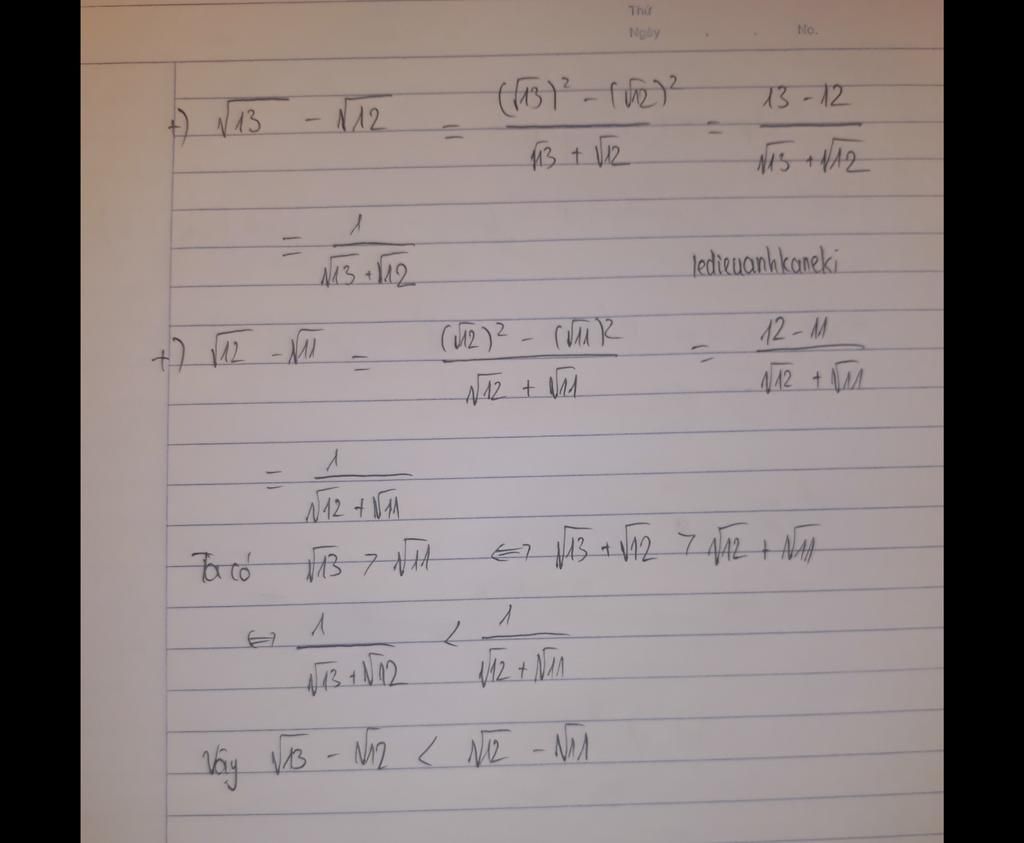 Thứ
Ngày . . No.
+) √13 - √12 = ((√13)² - (√12)²)/(√13 + √12) = (13 - 12)/(√13 + √12)
= 1/(√13 + √12)
ledieuanhkaneki
+) √12 - √11 = ((√12)² - (√11)²)/(√12 + √11) = (12 - 11)/(√12 + √11)
= 1/(√12 + √11)
Ta có √13 > √11 <=> √13 + √12 > √12 + √11
<=> 1/(√13 + √12) < 1/(√12 + √11)
Vây √13 - √12 < √12 - √11